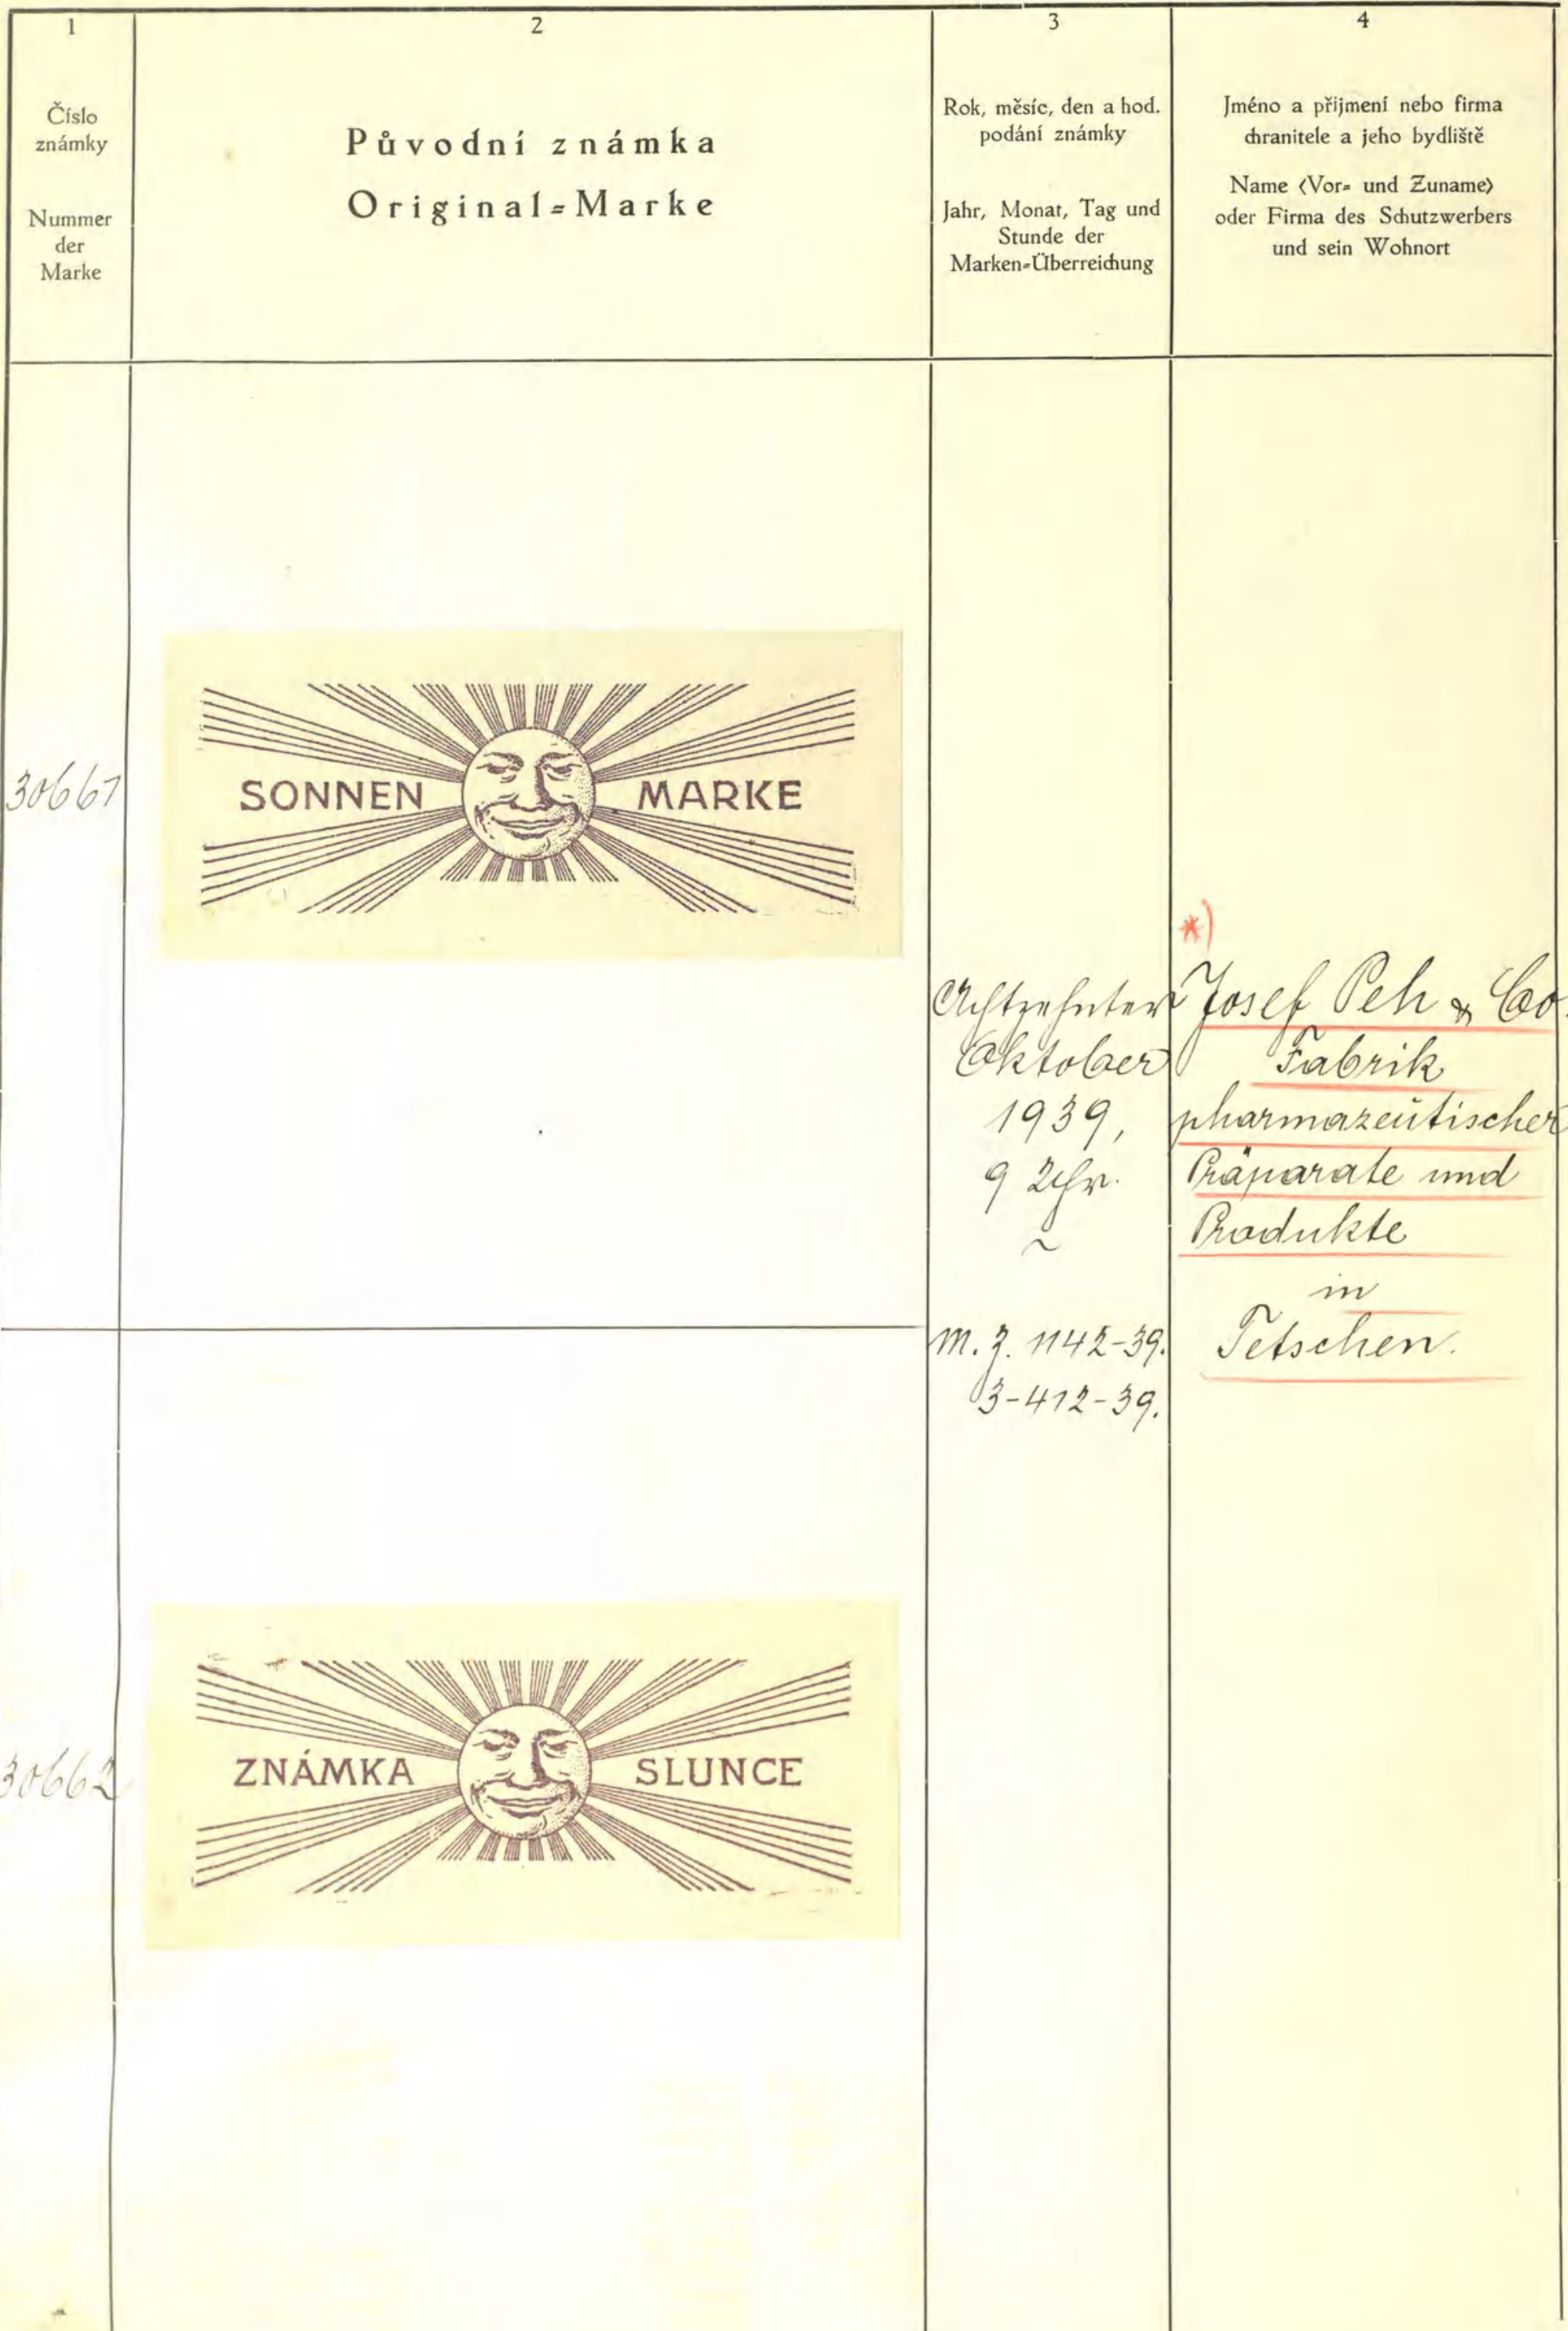 1
Číslo
známky
Nummer
der
Marke
2
Původní známka
Original=Marke
3
Rok, měsíc, den a hod.
podání známky
Jahr, Monat, Tag und
Stunde der
Marken=Überreichung
4
Jméno a přijmení nebo firma
chranitele a jeho bydliště
Name (Vor= und Zuname)
oder Firma des Schutzwerbers
und sein Wohnort
30661
SONNEN MARKE
Achtzehnter
Oktober
1939,
9 Uhr.
~
M. Z. 1142-39.
3-412-39.
*)
Josef Peh & Co.
Fabrik
pharmazeutischer
Präparate und
Produkte
in
Tetschen.
30662
ZNÁMKA SLUNCE